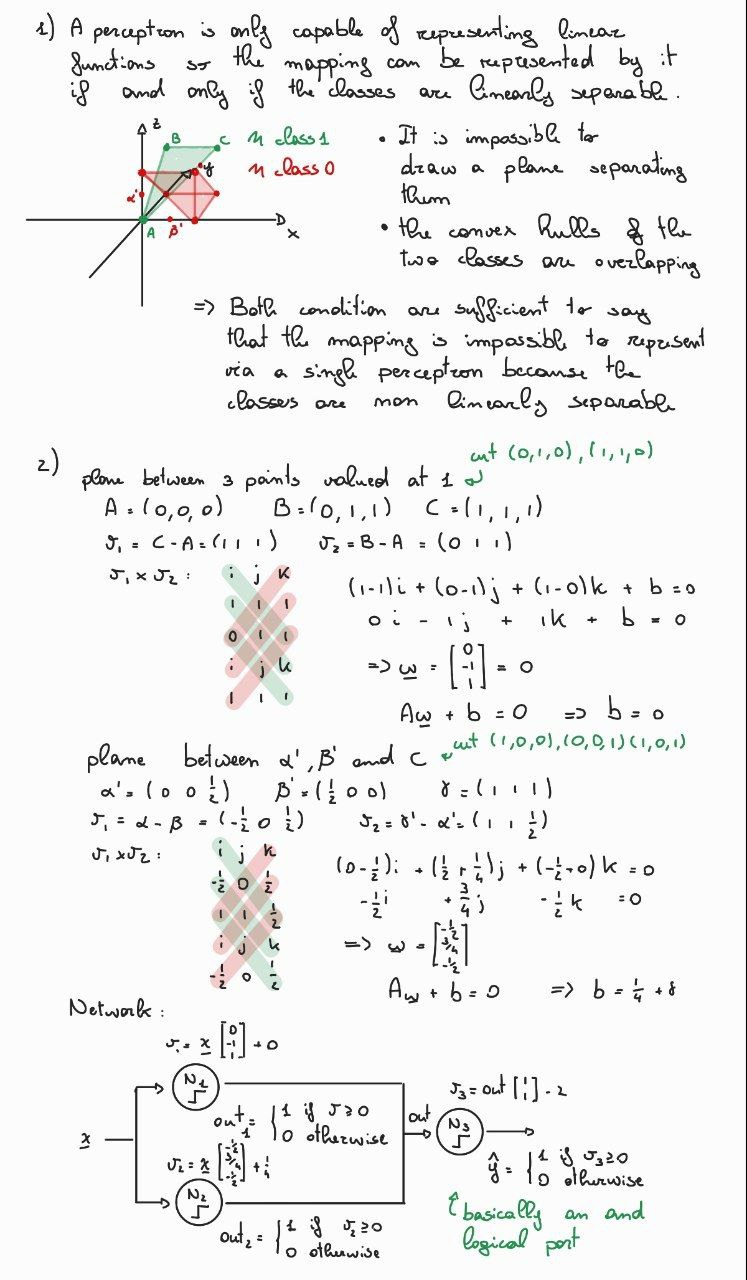 1) A perceptron is only capable of representing linear
functions so the mapping can be represented by it
if and only if the classes are linearly separable.
z
B
C
n class 1
y
n class 0
α'
A
β'
x
• It is impossible to
draw a plane separating
them
• the convex hulls of the
two classes are overlapping
=> Both condition are sufficient to say
that the mapping is impossible to represent
via a single perceptron because the
classes are non linearly separable
2)
cut (0,1,0), (1,1,0)
plane between 3 points valued at 1
A = (0,0,0) B = (0,1,1) C = (1,1,1)
v₁ = C - A = (1 1 1) v₂ = B - A = (0 1 1)
v₁ x v₂ :
i j k
1 1 1
0 1 1
i j k
1 1 1
(1-1)i + (0-1)j + (1-0)k + b = 0
0i - 1j + 1k + b = 0
=> w = [0 -1 1] = 0
Aw + b = 0 => b = 0
plane between α', β' and C
cut (1,0,0), (0,0,1) (1,0,1)
α' = (0 0 1/2) β' = (1/2 0 0) γ = (1 1 1)
v₁ = α - β = (-1/2 0 1/2) v₂ = γ' - α' = (1 1 1/2)
v₁ x v₂ :
i j k
-1/2 0 1/2
1 1 1/2
i j k
-1/2 0 1/2
(0-1/2)i + (1/2+1/4)j + (-1/2+0)k = 0
-1/2 i + 3/4 j - 1/2 k = 0
=> w = [-1/2 3/4 -1/2]
Aw + b = 0 => b = 1/4
Network :
v₁ = x [0 -1 1] + 0
N1
out₁ = { 1 if v ≥ 0
0 otherwise
x
v₂ = x [-1/2 3/4 -1/2] + 1/4
N2
out₂ = { 1 if v₂ ≥ 0
0 otherwise
v₃ = out [1 1] - 2
out
N3
ŷ = { 1 if v₃ ≥ 0
0 otherwise
basically an and
logical port